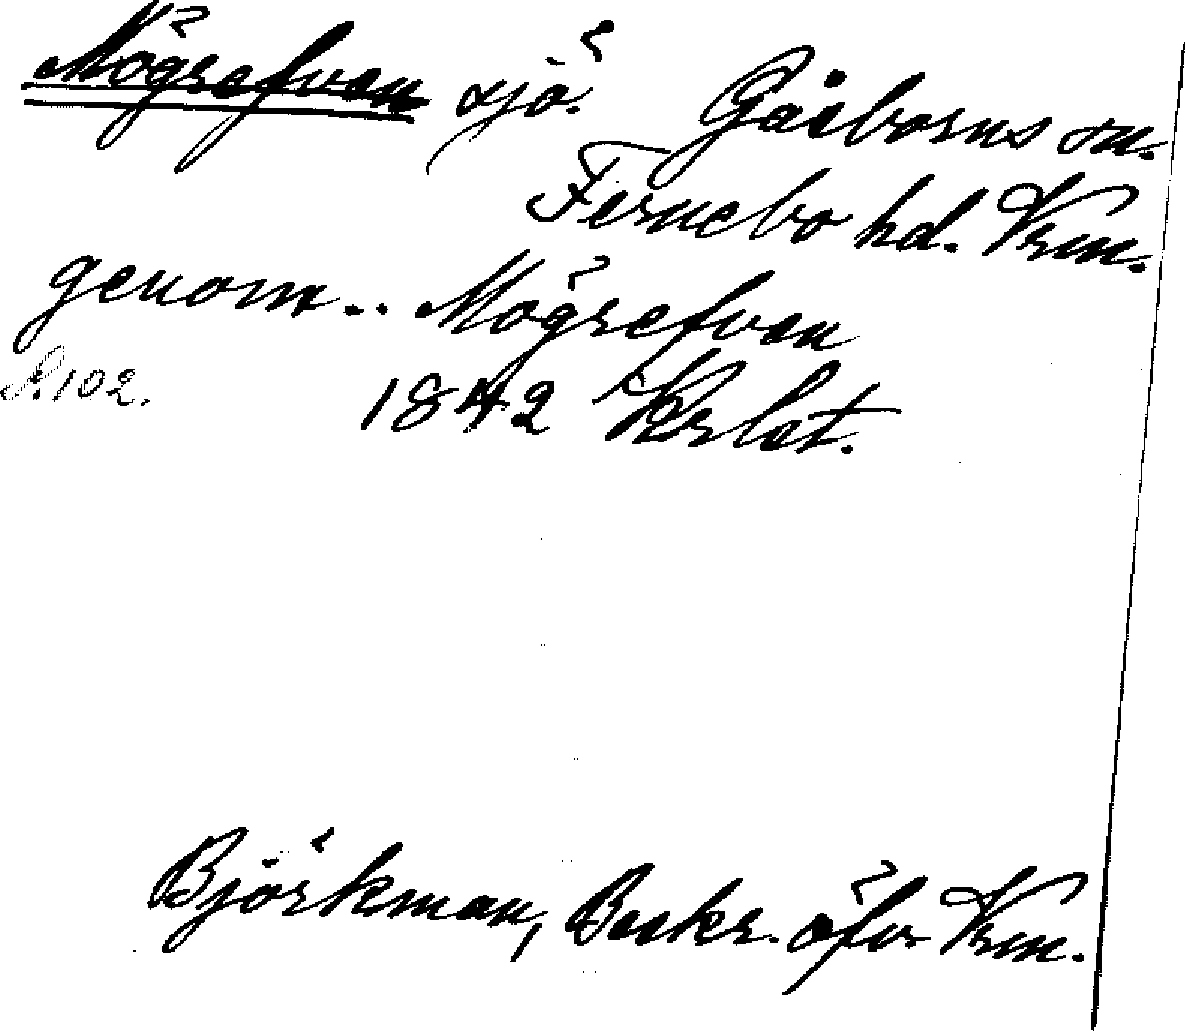 Mögrefven sjö. Gåsborns sn.
Fernebo hd. Vrm.
genom.. Mögrefven
S. 102. 1842 Krlst.
Björkman, Beskr. öfver Vrm.